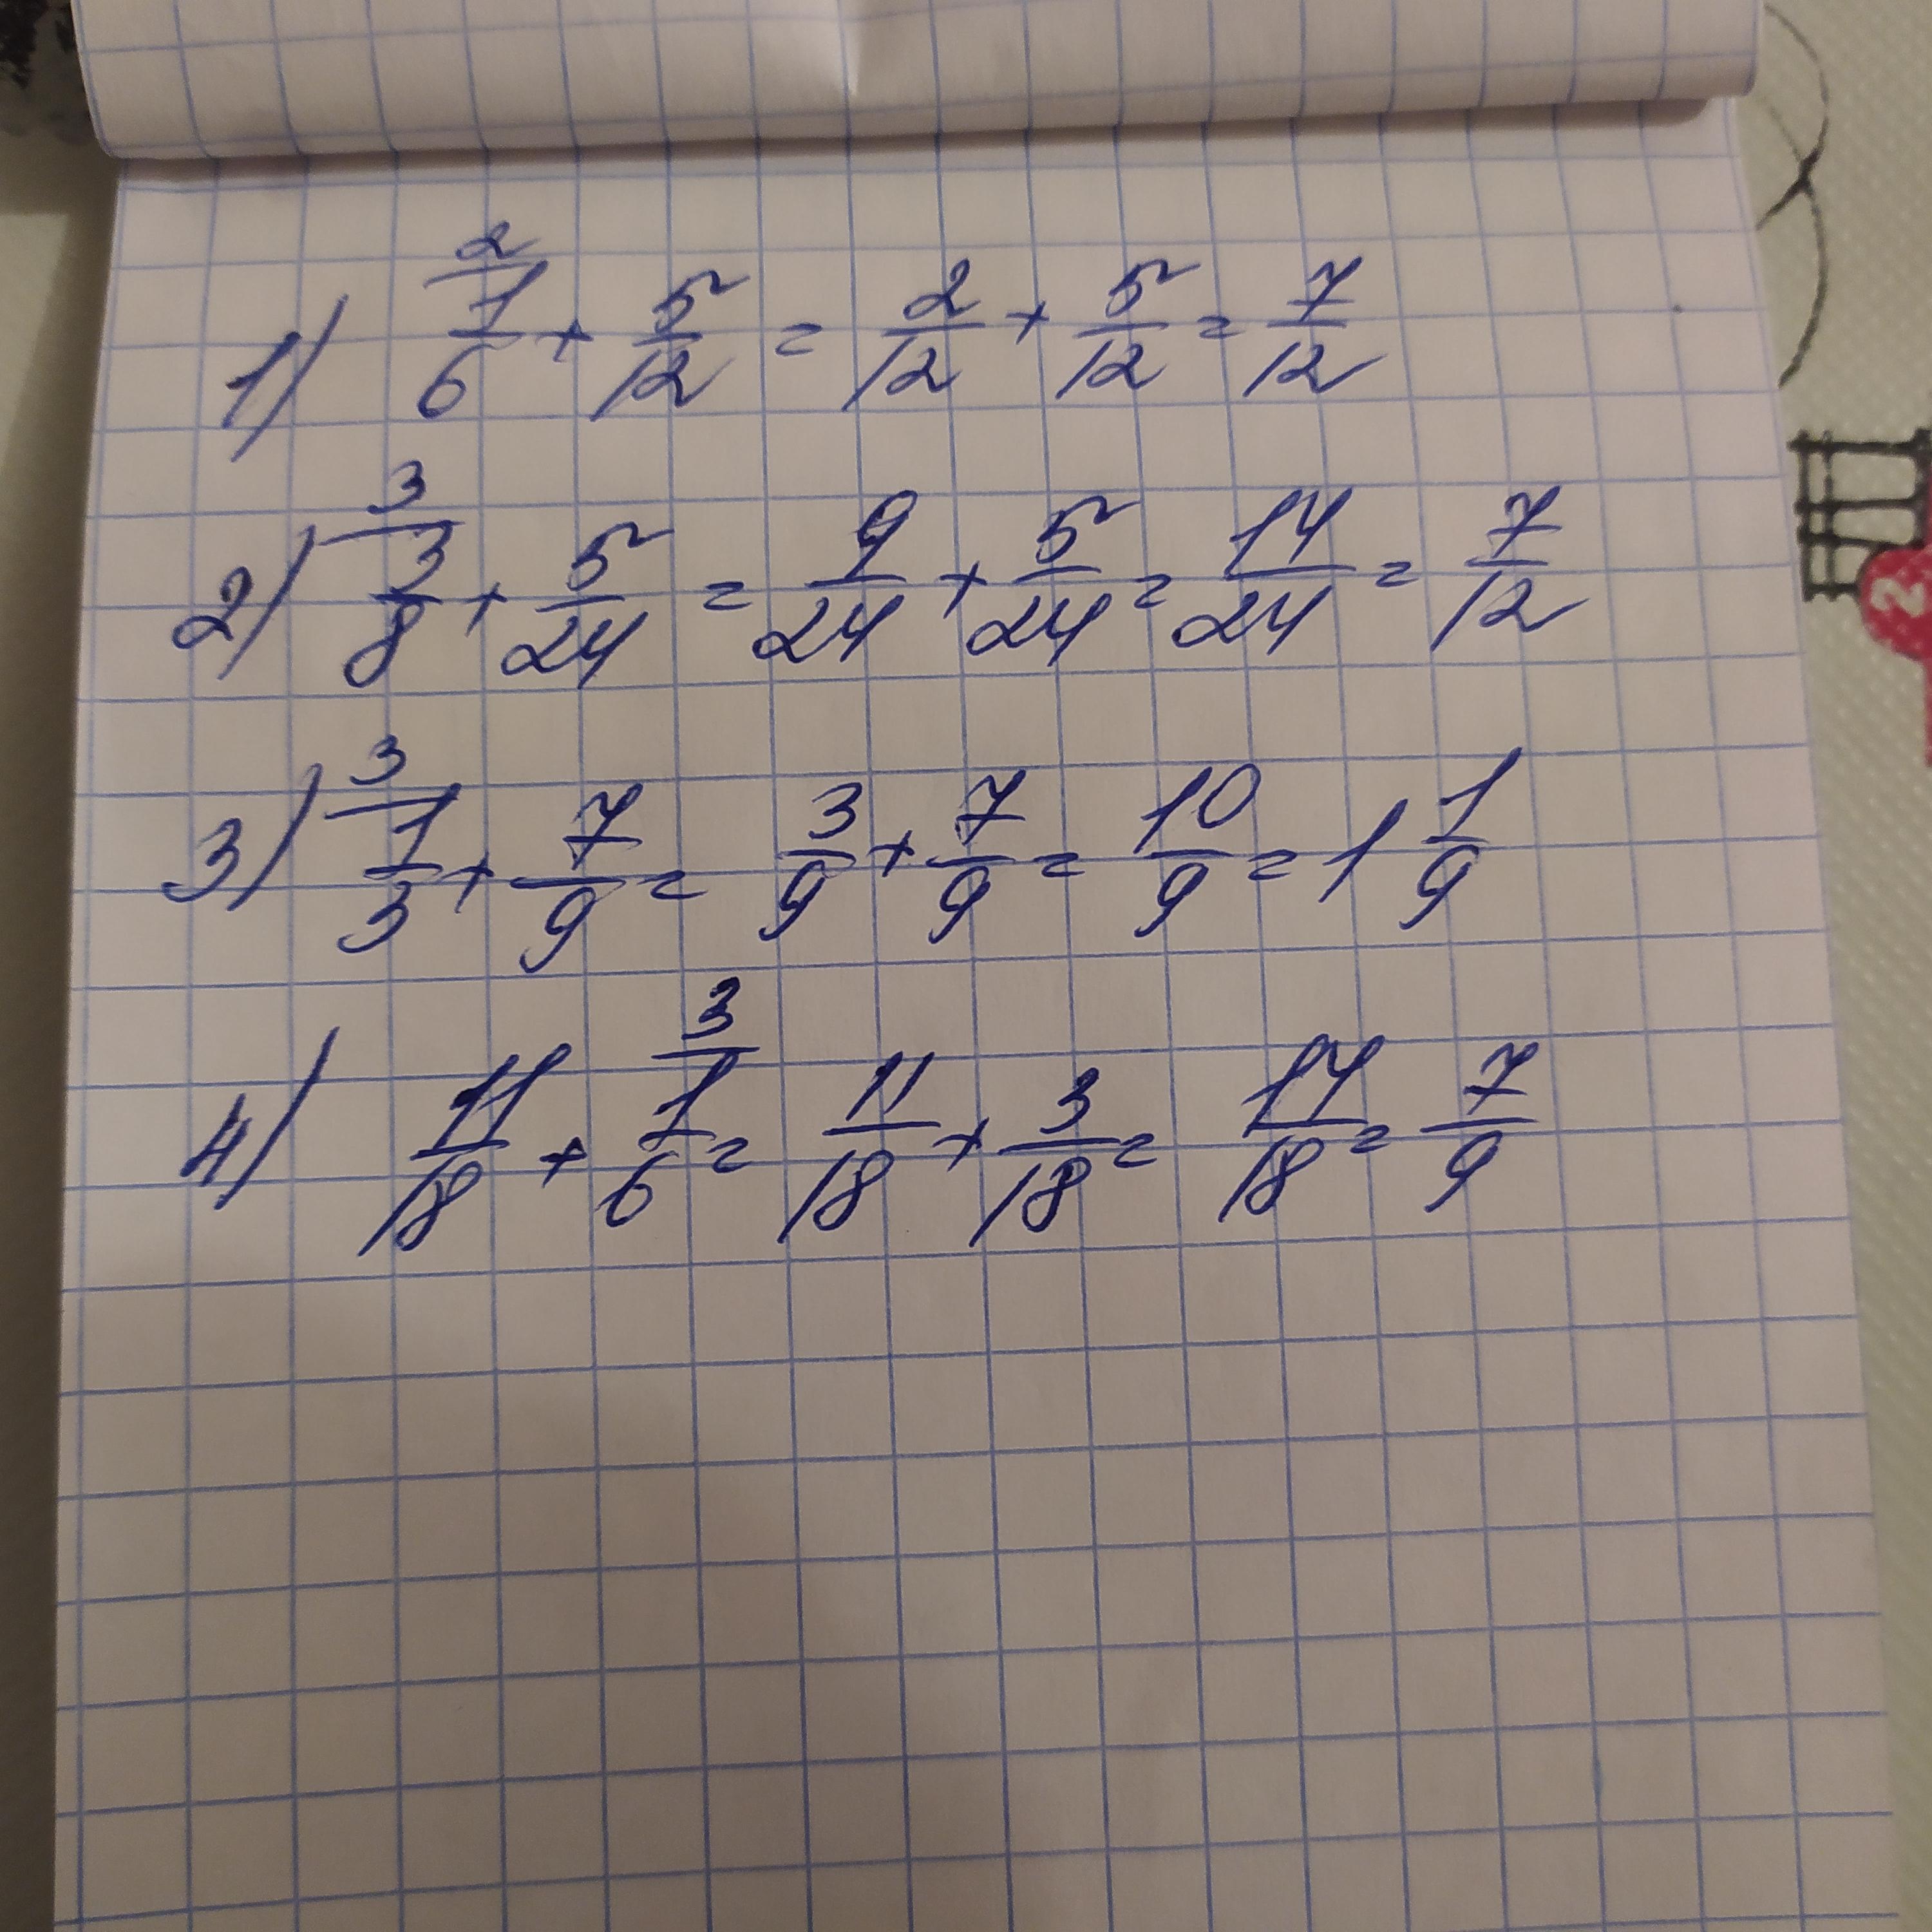 1) 2/ 1/6 + 5/12 = 2/12 + 5/12 = 7/12
2) 3/ 3/8 + 5/24 = 9/24 + 5/24 = 14/24 = 7/12
3) 3/ 1/3 + 7/9 = 3/9 + 7/9 = 10/9 = 1 1/9
4) 11/18 + 3/ 1/6 = 11/18 + 3/18 = 14/18 = 7/9
2